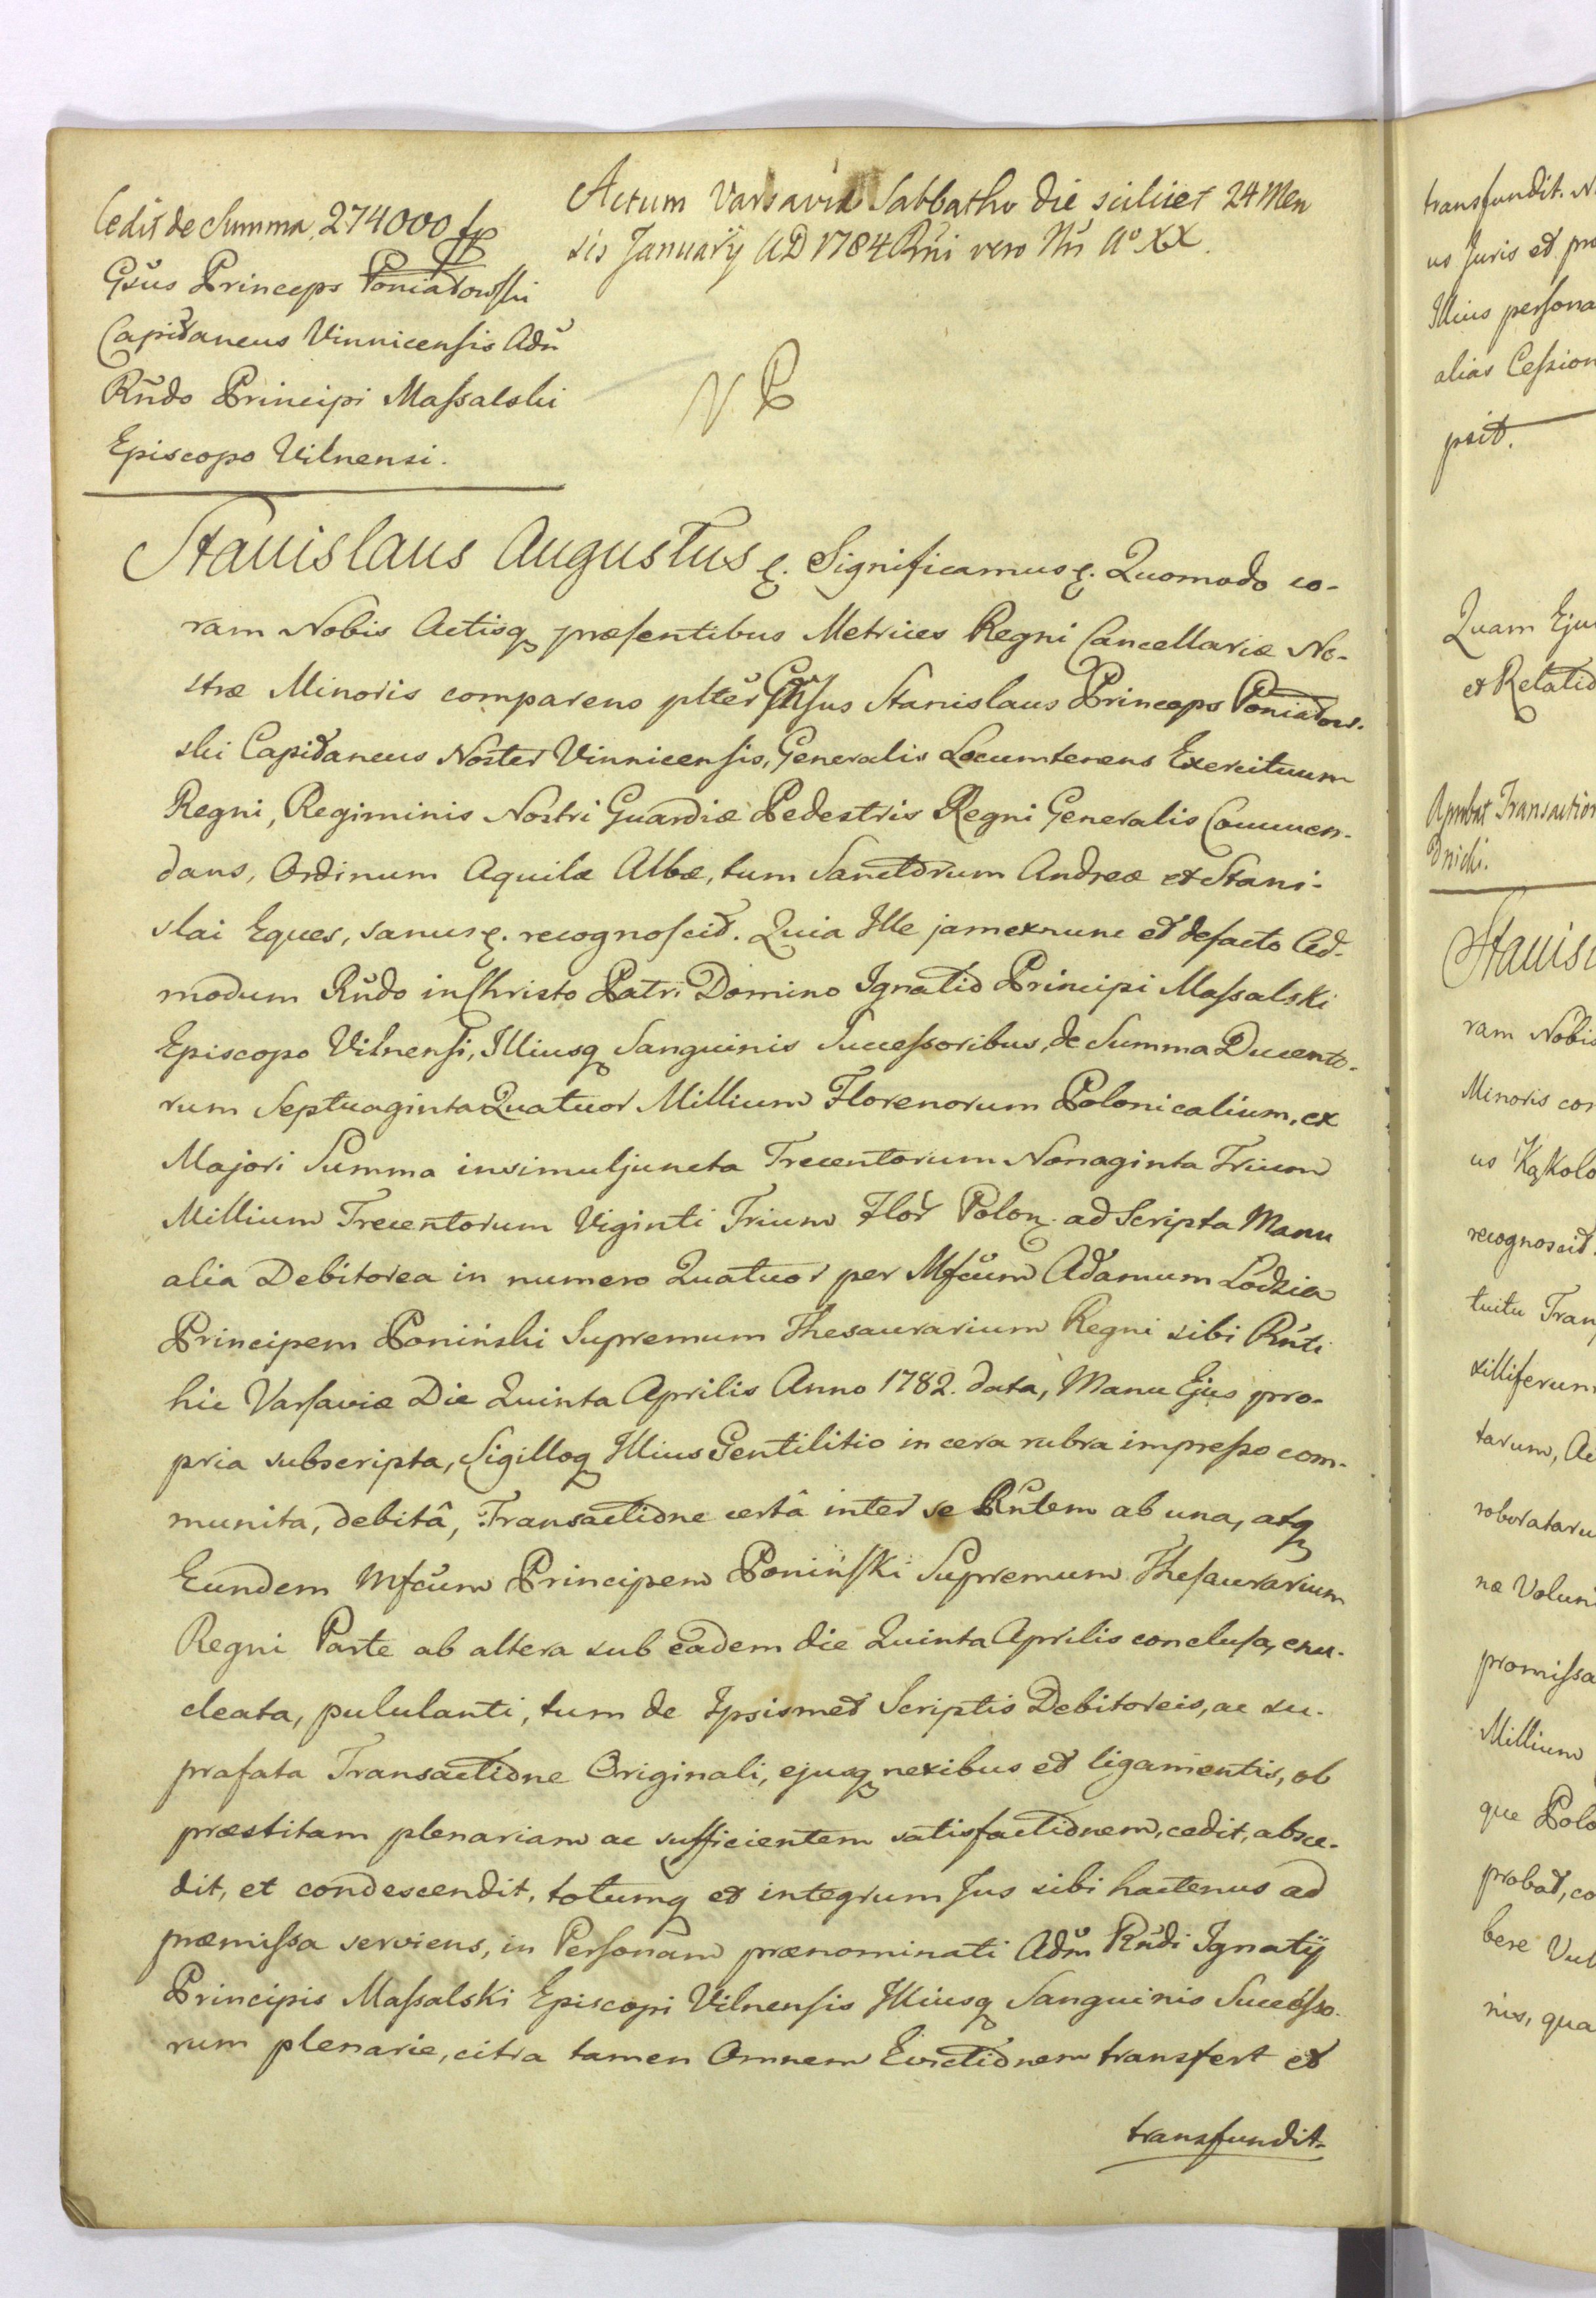 Cedit de Summa 274000 fp
Gsus Princeps Poniatowski
Capitaneus Vinnicensis Adm
Rndo Principi Massalski
Episcopo Vilnensi.
Actum Varsaviæ Sabbatho die scilicet 24 Men
sis Januarÿ AD 1784 Rni vero Nri Aº XX.
Stanislaus Augustus ꝛ. Significamus ꝛ. Quomodo co-
ram Nobis Actisq præsentibus Metrices Regni Cancellariæ No-
stræ Minoris comparens plter Gnsus Stanislaus Princeps Poniatow-
ski Capitaneus Noster Vinnicensis, Generalis Locumtenens Exercituum
Regni, Regiminis Nostri Guardiæ Pedestris Regni Generalis Commen-
dans, Ordinum Aquilæ Albæ, tum Sanctorum Andreæ et Stani-
slai Eques, sanus ꝛ. recognoscit. Quia Ille jam ex nunc et de facto Ad-
modum Rndo in Christo Patri Domino Ignatio Principi Massalski
Episcopo Vilnensi, Illiusq Sanguinis Successoribus, de Summa Ducento-
rum Septuaginta Quatuor Millium Florenorum Polonicalium, ex
Majori Summa insimul juncta Trecentorum Nonaginta Trium
Millium Trecentorum Viginti Trium Flor Polon. ad Scripta Manu
alia Debitorea in numero Quatuor per Mfcum Adamum Lodzia
Principem Poniński Supremum Thesaurarium Regni sibi Rnti
hic Varsaviæ Die Quinta Aprilis Anno 1782. data, Manu Ejus pro-
pria subscripta, Sigilloq Illius Gentilitio in cera rubra impresso com-
munita, debitâ, Transactione certâ inter se Rntem ab una, atq
Eundem Mfcum Principem Poniński Supremum Thesaurarium
Regni Parte ab altera sub eadem die Quinta Aprilis conclusa, enu-
cleata, pululanti, tum de Ipsismet Scriptis Debitoreis, ac su-
prafata Transactione Originali, ejusq nexibus et ligamentis, ob
præstitam plenariam ac sufficientem satisfactionem, cedit, absce-
dit, et condescendit, totumq et integrum Jus sibi hactenus ad
præmissa serviens, in Personam prænominati Adm Rndi Ignatÿ
Principis Massalski Episcopi Vilnensis Illiusq Sanguinis Successo-
rum plenarie, citra tamen Omnem Evictionem transfert et
transfundit.
transfundit. N
us Juris et pro
Illius persona
alias Cession
psit.
Quam Eju
et Relatio
Aprobat Transaction
Stanisl
ram Nobis
Minoris co
us Kąkolo
recognoscit.
tuitu Tran
xilliferum
tarum, Ac
roboratarum
næ Volun
promissa
Millium
que Polo
probat, co
bere Vul
nis, qua